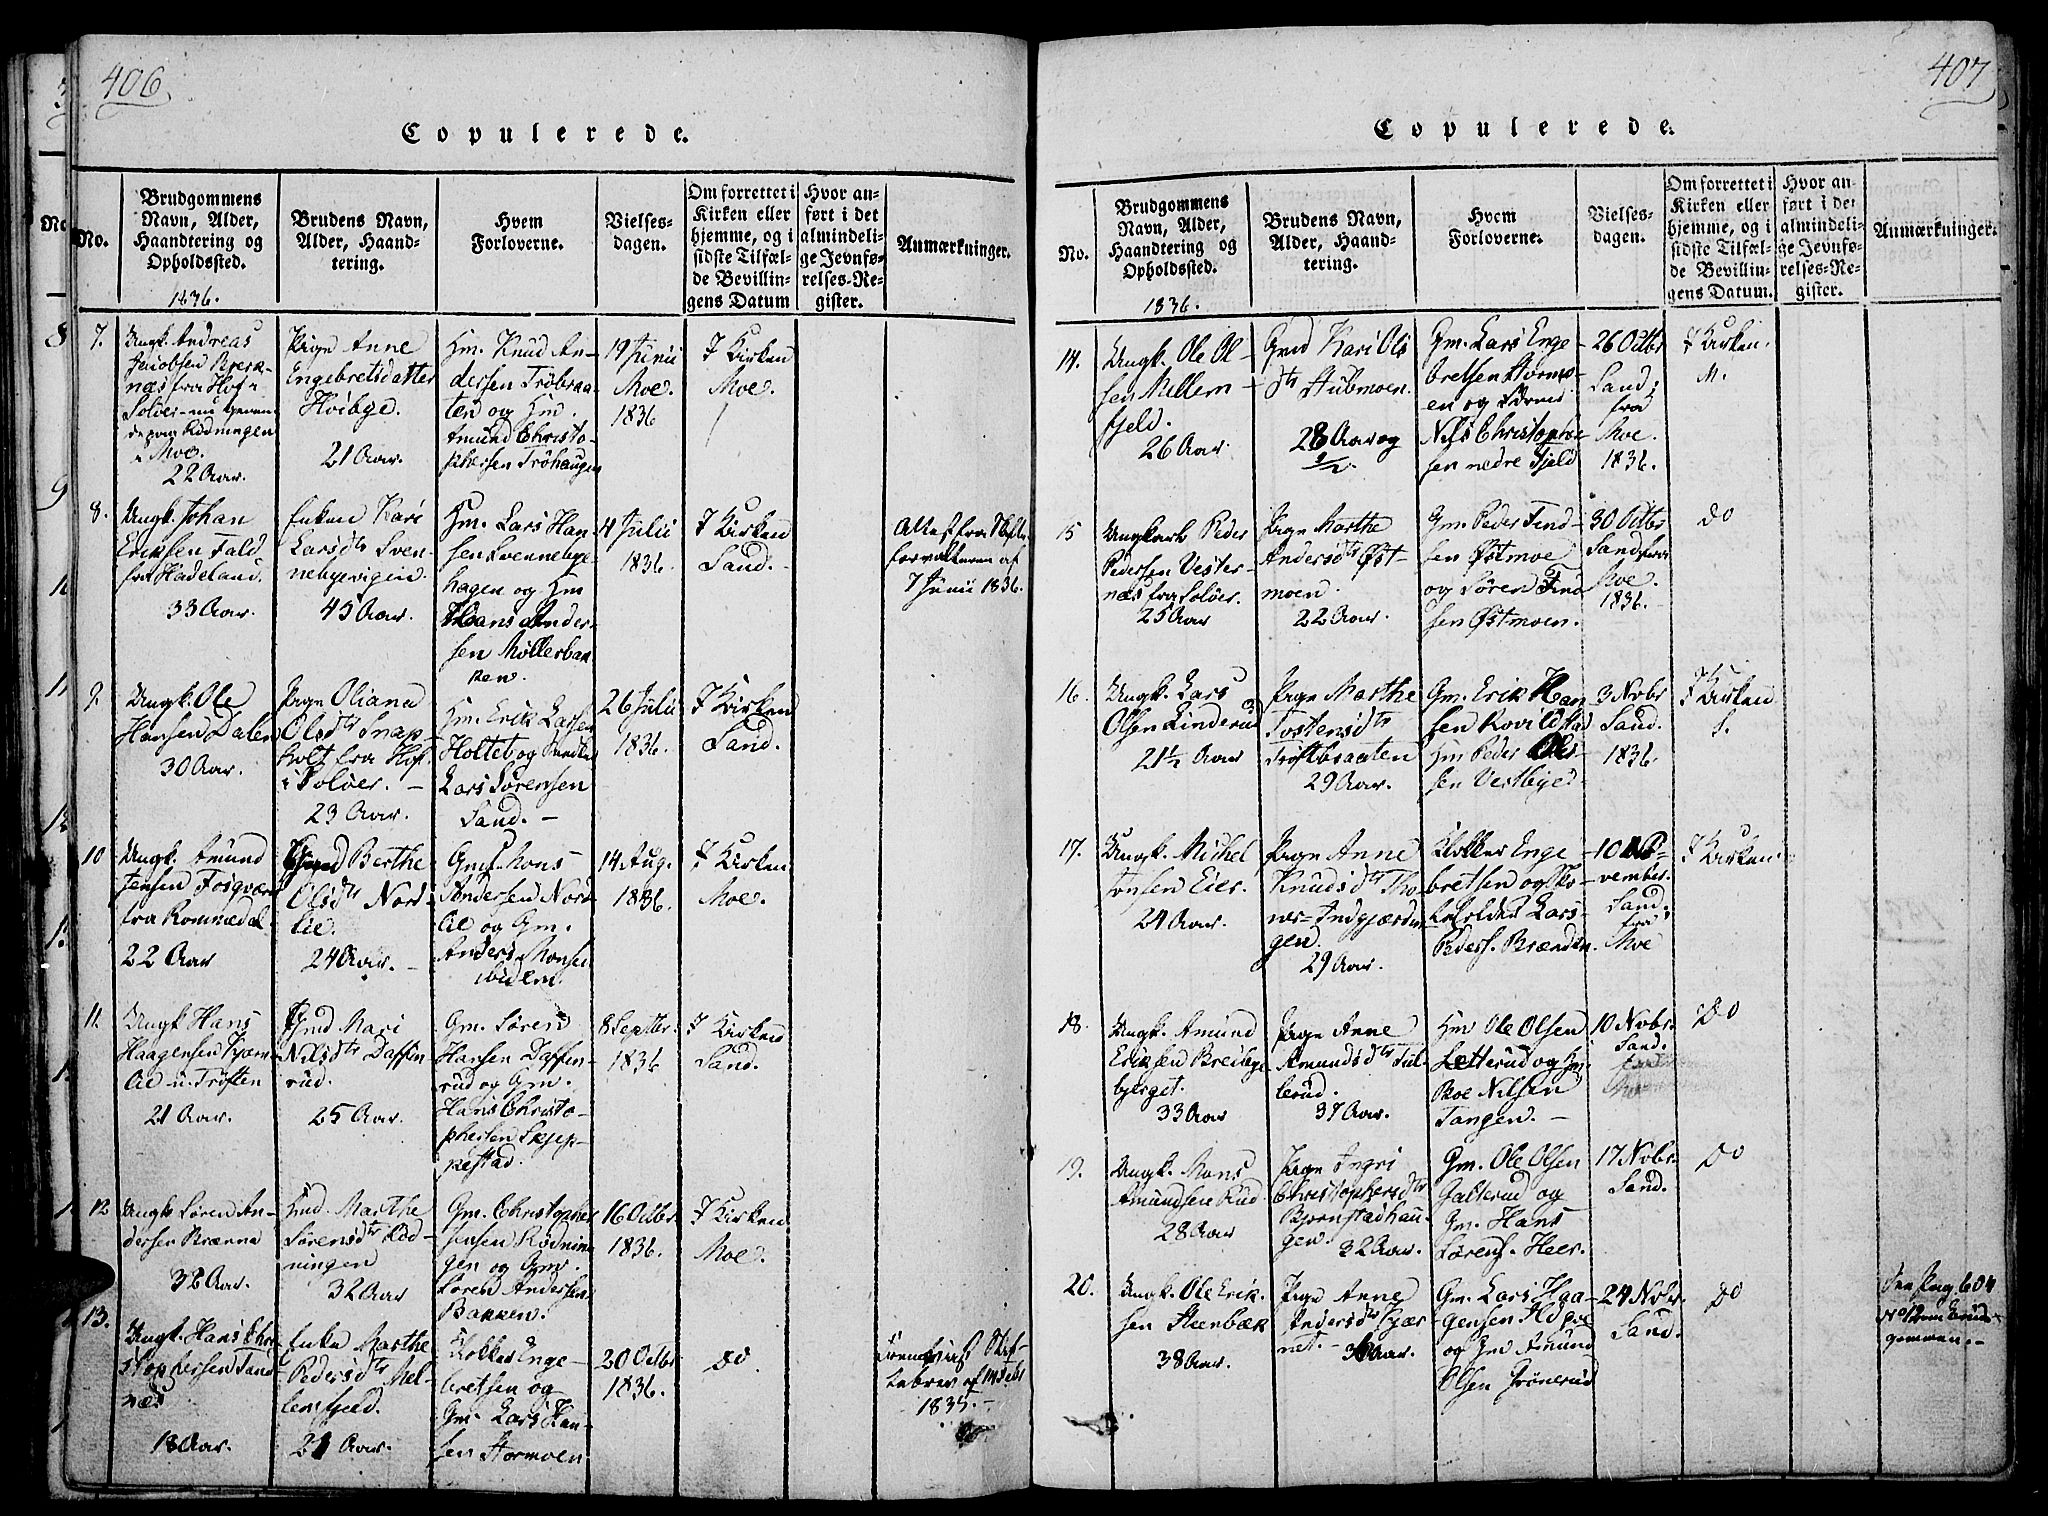 406
Copulerede.
No.
Brudgommens
Navn, Alder,
Haandtering og
Opholdssted.
1836.
Brudens Navn,
Alder, Haand-
tering.
Hvem
Forloverne.
Vielses-
dagen.
Om forrettet i
Kirken eller
hjemme, og i
sidste Tilfæl-
de Bevillin-
gens Datum
Hvor an-
ført i det
almindeli-
ge Jevnfø-
relses-Re-
gister.
Anmærkninger.
7.
Ungk. Andreas
Jacobsen
næs fra Hof i
Soløer
Rødningen
i Moe.
22 Aar.
Pige Anne
Engebretsdatter
Hvibye.
21 Aar.
Gm. Knud An-
dersen Tröbraa-
ten og Gm.
Amund Christo-
phersen Tröhaugen
19 Junii
Moe.
1836
I Kirken
Moe.
8.
Ungk. Johan
Eriksen Fald
fra Hadeland.
33 Aar.
Enken Kari
Larsdtr Sven-
nebyevigen.
45 Aar.
Gm. Lars Han-
sen Svennebye-
hagen og Gm
Hans Ander-
sen Møllerbak
ken.
4 Julii
1836.
I Kirken
Sand.
Attest fra Skifte
forvalteren af
7 Junii 1836.
9.
Ungk. Ole
Hansen Dalen
30 Aar.
Pige Oliana
Olsdtr Snap-
holt fra Hof
i Soløer.
23 Aar.
Gm. Erik Larsen
Holteb og
Lars Sørensen
Sand.
26 Julii
1836.
I Kirken
Sand.
10
Ungk. Amund
Jensen
fra Rommedal.
22 Aar
Berthe
Olsdtr Nord-
lie.
24 Aar.
Gm. Mons
Andersen Nord
lie og Gm.
Anders Monsen
ibidem.
14 Aug.
1836.
I Kirken
Moe.
11.
Ungk. Hans
Haagensen Kjern
lie u. Trøften
21 Aar.
Gmd Mari
Nilsdtr Daffin-
rud.
25 Aar.
Gm. Søren
Hansen Daffin-
rud og Gm.
Hans Christo-
phersen Skjep-
pestad.
8 Septbr.
1836
I Kirken
Sand.
12
Ungk. Søren An-
dersen Brænna
32 Aar.
Gmd. Marthe
Sørensdtr Rød-
ningen
32 Aar
Gm. Christopher
Jensen Rødnin-
gen og Gm.
Søren Andersen
Bakken.
16 Octbr.
1836.
I Kirken
Moe.
13.
Ungk. Hans Chri-
stophersen Sand-
næs
18 Aar.
Enke Marthe
Pedersdtr Mel-
lemfjeld.
21 Aar.
Klokker Enge-
bretsen og
Gm. Lars Han-
sen Stormoen.
20 Octbr
1836.
do.
1835.
407
Copulerede.
No.
Brudgommens
Navn, Alder,
Haandtering og
Opholdssted.
1836.
Brudens Navn,
Alder, Haand-
tering.
Hvem
Forloverne.
Vielses-
dagen.
Om forrettet i
Kirken eller
hjemme, og i
sidste Tilfæl-
de Bevillin-
gens Datum.
Hvor an-
ført i det
almindeli-
ge Jevnfø-
relses-Re-
gister.
Anmærkninger.
14.
Ungk. Ole Ol-
sen Mellem-
fjeld.
26 Aar
Gmd Kari Ols
dtr Stubmoen.
28 Aar og
1/2.
Gm. Lars Enge
bretsen Stormo-
en og
Nils Christophe
sen nedre Fjeld
26 Octbr
Sand.
fra
Moe.
1836.
I Kirken.
M.
15
Ungkarl Peder
Pedersen Vester-
næs fra Soløer.
25 Aar
Pige Marthe
Andersdtr Øst-
moen.
22 Aar.
Gm. Peder Find-
sen Østmoe
og Søren Find
sen Østmoen.
30 Octbr
Sand fra
Moe.
1836.
do
16.
Ungk. Lars
Olsen Linderud
21½ Aar
Pige Marthe
Tostensdtr
Trøftbraaten
29 Aar.
Gm. Erik Han
sen Rovildstad
Gm Peder Ol-
sen Vestbye
3 Novbr
Sand.
1836.
I Kirken
S.
17.
Ungk. Michel
Jonsen Eier.
24 Aar.
Pige Anne
Knudsdtr Tho-
nes-Indgjærdin
gen.
29 Aar.
Klokker Enge
bretsen og
Lars
Peders. Brænden.
10 No-
vember.
Sand.
fra
Moe
I Kirken
18.
Ungk. Amund
Eriksen Breibye
bjerget.
33 Aar
Pige Anne
Amundsdtr Sul-
lerud.
37 Aar.
Gm Ole Olsen
Letterud og Gm.
Boe Nilsen
Tangen.
10 Novbr.
Sand.
do
19.
Ungk. Mons
Amundsen Rud
28 Aar
Pige Ingri
Christophersdtr
Bjørnstadhau-
gen.
32 Aar.
Gm. Ole Olsen
Galterud og
Gm. Hans
Sørens. Heer.
17 Novbr.
Sand.
do
20.
Ungk. Ole Erik-
sen Steenbæk
38 Aar.
Pige Anne
Andersdtr Kjær
net.
36 Aar.
Gm. Lars Haa-
gensen
og Gm Amund
Olsen Grönerud
24 Novbr.
Sand.
do
See Pag 604
No 12 om Brud-
gommen.